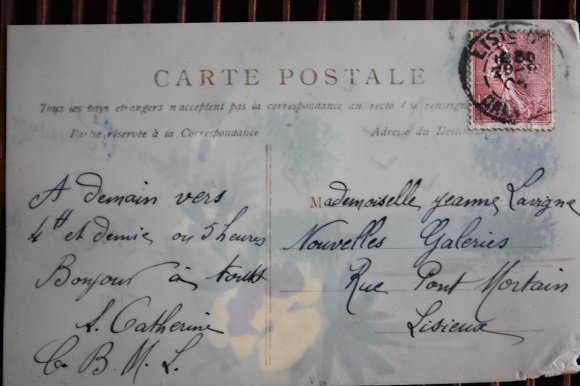 CARTE POSTALE
Tous les pays étrangers n'acceptent pas la correspondance au recto (se renseigne
Partie réservée à la Correspondance
Adresse du Destina
LISIEUX
A demain vers
4h et demie ou 5 heures
Bonjour à tous
S. Catherine
C. B. M. L.
Mademoiselle Jeanne Lavigne
Nouvelles Galeries
Rue Pont Mortain
Lisieux